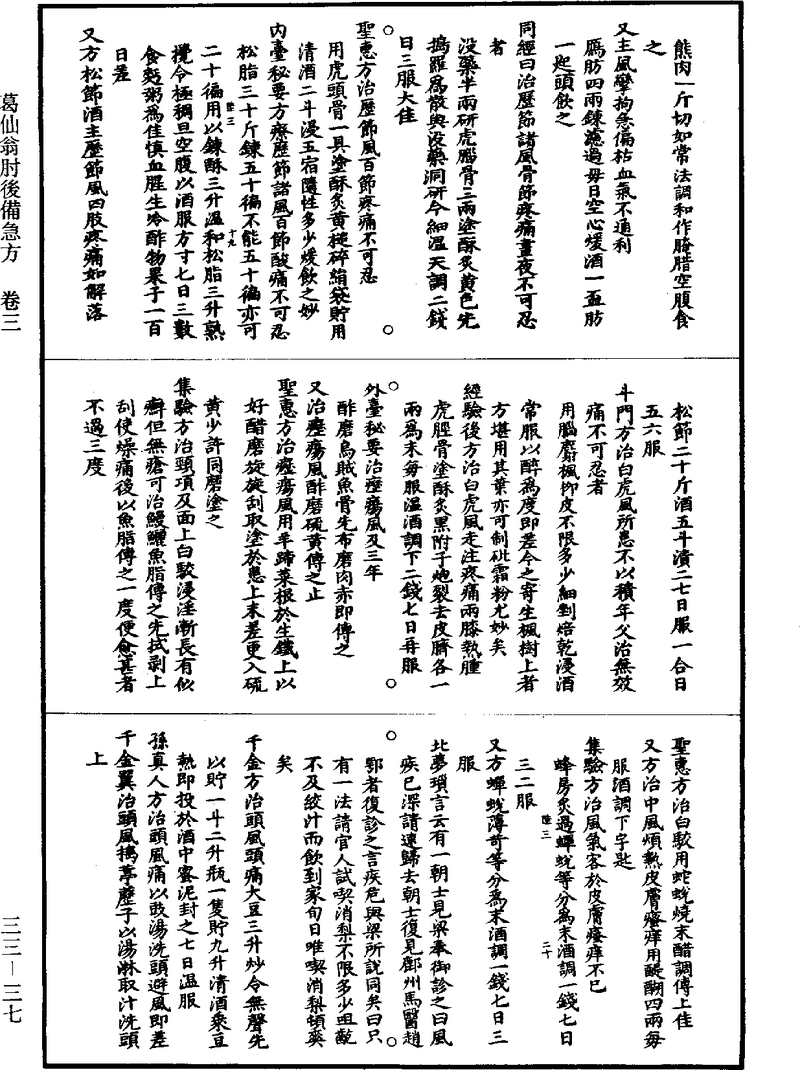 葛仙翁肘後備急方　卷三
三三—三七
熊肉一斤切如常法調和作腌腊空腹食
之
又主風攣拘急偏枯血氣不通利
鴈肪四兩鍊濾過每日空心煖酒一盃肪
一匙頭飲之
同經曰治歷節諸風骨節疼痛晝夜不可忍
者
沒藥半兩研虎腦骨三兩塗酥炙黃色先
擣羅為散與沒藥同研令細溫天調二錢
日三服大佳
聖惠方治歷節風百節疼痛不可忍
用虎頭骨一具塗酥炙黃槌碎絹袋貯用
清酒二斗浸五宿隨性多少煖飲之妙
內臺秘要方療歷節諸風百節酸痛不可忍
松脂三十斤鍊五十徧不能五十徧亦可
二十徧用以鍊酥三升溫和松脂三升熟
攪令極稠旦空腹以酒服方寸七日三數
食麪粥為佳慎血腥生冷酢物果子一百
日差
又方松節酒主歷節風四肢疼痛如解落
陸三
十九
松節二十斤酒五斗漬二七日服一合日
五六服
斗門方治白虎風所患不以積年父治無效
痛不可忍者
用腦麝楓柳皮不限多少細剉焙乾浸酒
常服以醉為度即差今之寄生楓樹上者
方堪用其葉亦可制砒霜粉尤妙矣
經驗後方治白虎風走注疼痛兩膝熱腫
虎脛骨塗酥炙黑附子炮裂去皮臍各一
兩為末每服溫酒調下二錢七日再服
外臺秘要治癧瘍風及三年
酢磨烏賊魚骨先布磨肉赤即傅之
又治癧瘍風酢磨硫黃傅之止
聖惠方治癧瘍風用羊蹄菜根於生鐵上以
好醋磨旋旋刮取塗於患上未差更入硫
黃少許同磨塗之
集驗方治頸項及面上白駮浸淫漸長有似
癬但無瘡可治鰻鱺魚脂傅之先拭剥上
刮使燥痛後以魚脂傅之一度便愈甚者
不過三度
聖惠方治白駮用蛇蛻燒末醋調傅上佳
又方治中風煩熱皮膚瘙痒用醍醐四兩每
服酒調下字匙
集驗方治風氣客於皮膚瘙痒不已
蜂房炙過蟬蛻等分為末酒調一錢七日
三二服
陸三
二十
又方蟬蛻薄苛等分為末酒調一錢七日三
服
北夢瑣言云有一朝士見梁奉御診之曰風
疾已深請速歸去朝士復見鄜州馬醫趙
鄂者復診之言疾危與梁所說同矣曰只
有一法請官人試喫消梨不限多少咀齕
不及絞汁而飲到家旬日唯喫消梨頓爽
矣
千金方治頭風頭痛大豆三升炒令無聲先
以貯一斗二升瓶一隻貯九升清酒乘豆
熱即投於酒中蜜泥封之七日溫服
孫真人方治頭風痛以豉湯洗頭避風即差
千金翼治頭風擣葶藶子以湯淋取汁洗頭
上